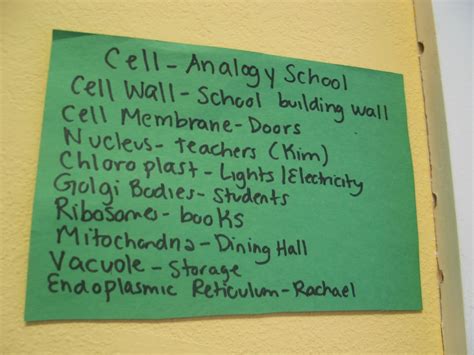 Cell - Analogy School
Cell Wall - School building wall
Cell Membrane - Doors
Nucleus - teachers (Kim)
Chloroplast - Lights/Electricity
Golgi Bodies - Students
Ribosomes - books
Mitochondna - Dining Hall
Vacuole - Storage
Endoplasmic Reticulum - Rachael